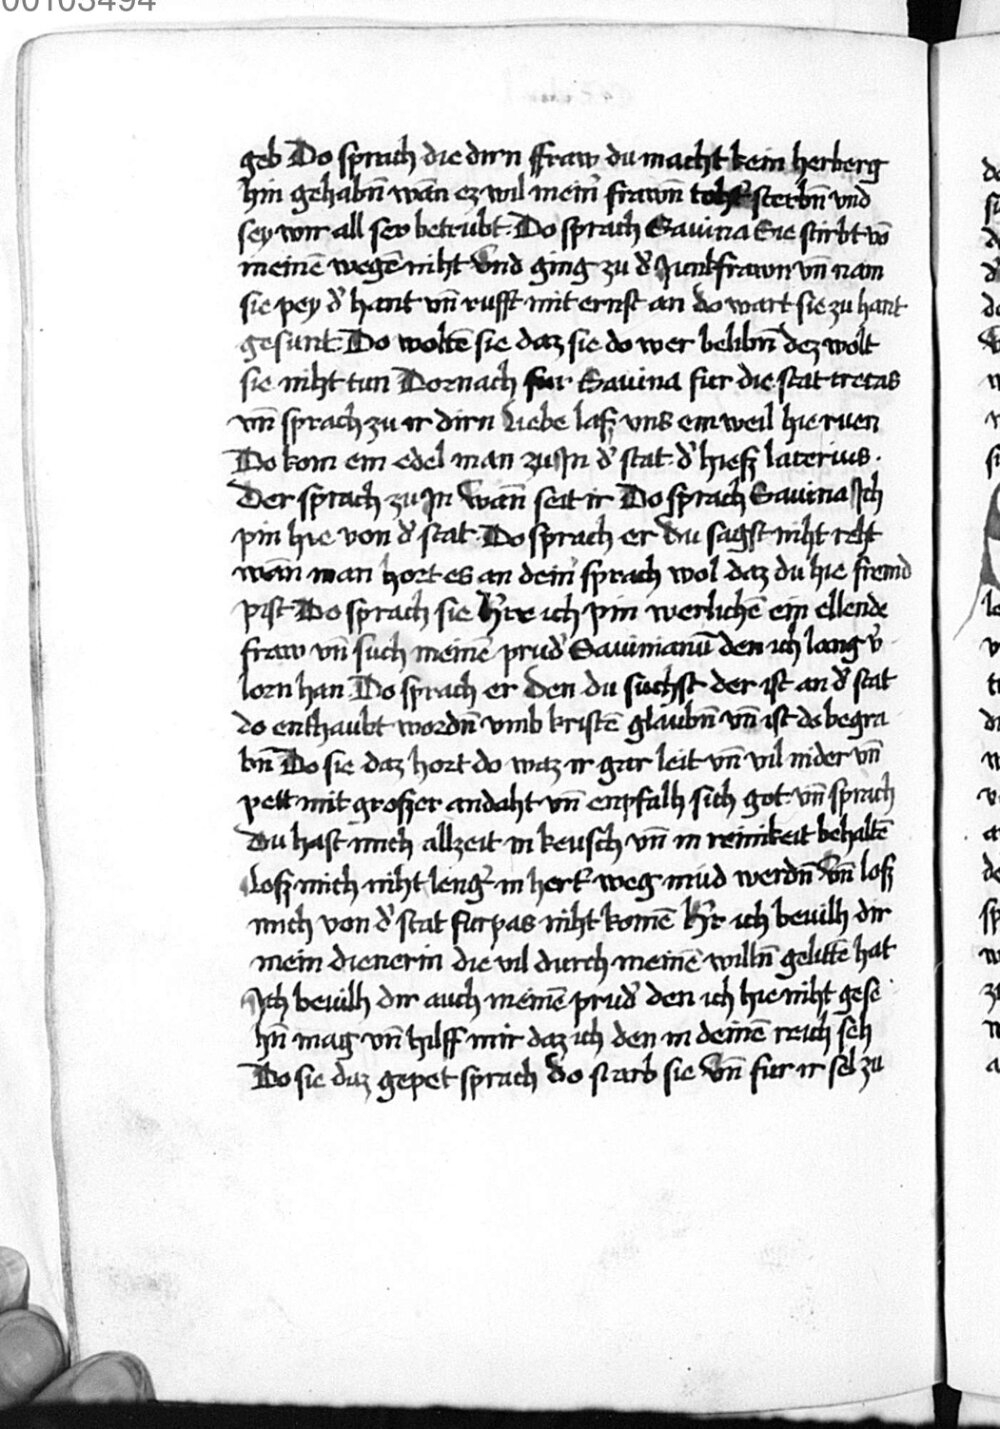 00103494
geb Do sprach die dirn ffraw du macht kein herberg
hin gehabn̄ wan̄ ez wil mein̾ frawn̄ toht̾ sterbn̄ vnd
sey wir all ser betrubt. Do sprach Sauina Sie stirbt vō
meinē wegē niht Vnd ging zu d̾ Junkfrawn vn̄ nam
sie pey d̾ hant vn̄ rufft mit ernst an do wart sie zu hant
gesunt Do woltē sie daz sie do wer belibn̄ dez wolt
sie niht tun Dornach fur Sauina fur die stat tretas
vn̄ sprach zu ir dirn Liebe laß vns ein weil hie ruen
Do kom ein edel man zu Jn d̾ stat. d̾ hieß laterius.
Der sprach zu Jn Wan̄ seit ir Do sprach Sauina Jch
pin hie von d̾ stat. Do sprach er du sagst niht reht
wan̄ man hort es an dein̾ sprach wol daz du hie fremd
pist Do sprach sie H̾re ich pin werlichē ein ellende
fraw vn̄ such meinē prud̾ Sauinianū den ich lang v̾
lorn han Do sprach er den du suchst der ist an d̾ stat
do enthaubt wordn̄ vmb kristē glaubn̄ vn̄ ist do begra
bn̄ Do sie daz hort do waz ir gar leit vn̄ vil nider vn̄
pett mit großer andaht vn̄ enpfalh sich got vn̄ sprach
Du hast mich allzeit in keusch vn̄ in reinikeit behaltē
Loß mich niht leng̾ in hert̾ weg müd werdn̄ Vn̄ loß
mich von d̾ stat furpas niht komē H̾r ich beuilh dir
mein dienerin die vil durch meinē willn̄ gelittē hat
Jch beuilh dir auch meinē prud̾ den ich hie niht gese
hn̄ mag vn̄ hilff mir daz ich den in deinē reich seh
Do sie daz gepet sprach do starb sie Vn̄ fur ir sel zu